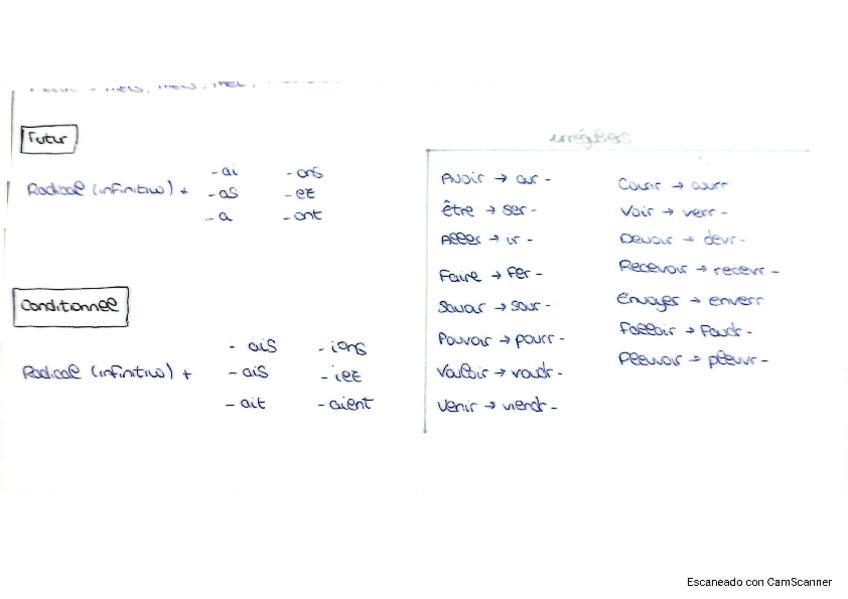 Futur
Radical (infinitivo) +
-ai -ons
-as -ez
-a -ont
Conditionnel
Radical (infinitivo) +
-ais -ions
-ais -iez
-ait -aient
irréguliers
Avoir → aur-
être → ser-
Aller → ir-
Faire → Fer-
Savoir → saur-
Pouvoir → pourr-
Vouloir → voudr-
Venir → viendr-
Courir → courr
Voir → verr-
Devoir → devr-
Recevoir → recevr-
Envoyer → enverr
Falloir → Faudr-
Pleuvoir → pleuvr-
Escaneado con CamScanner